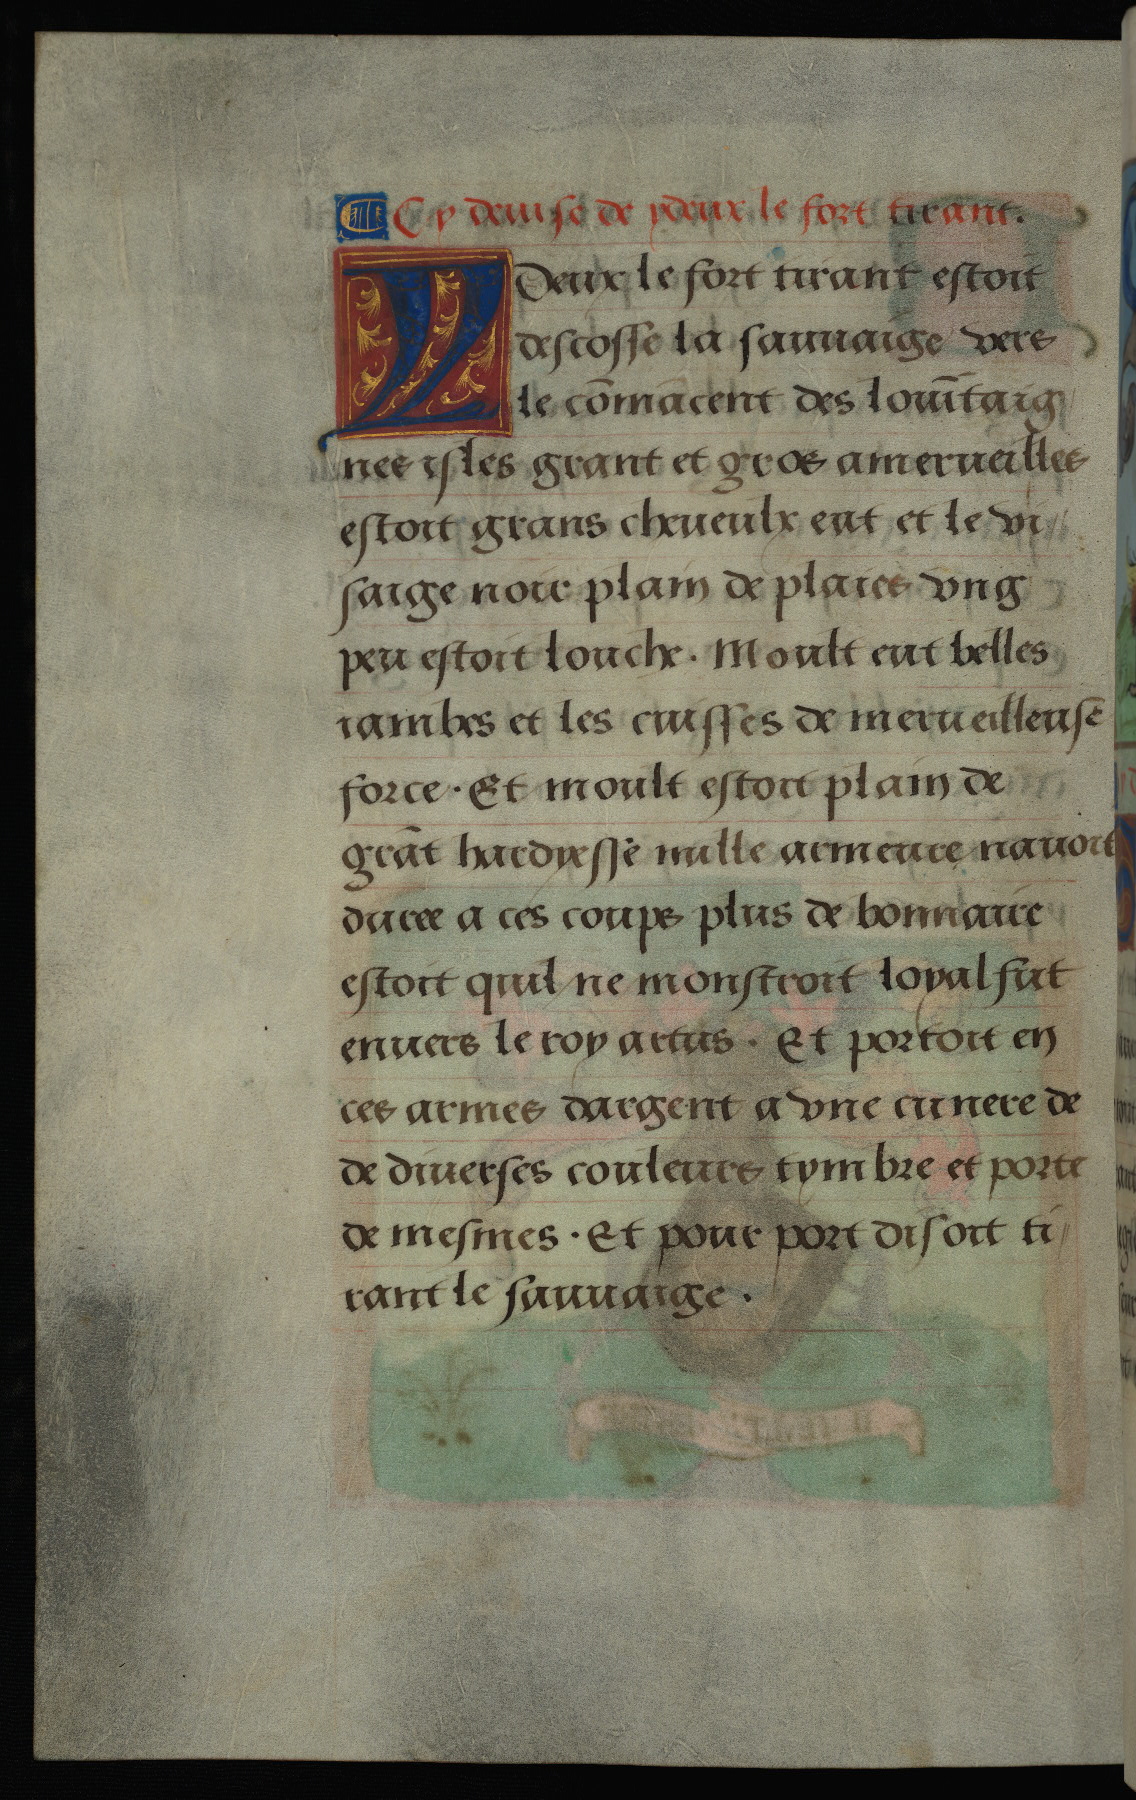 Cy deuise de ydeux le fort tirant.
Ydeux le fort tirant estoit
descosse la sauuaige vers
le cōmācent des louītaig
nes isles grant et gros amerueilles
estoit grans cheueulx eut et le vi//
saige noir plain de plaies vng
peu estoit louche. Moult eut belles
iambes et les cuisses de merueilleusē
force. Et moult estoit plain de
grāt hardyesse nulle armeure nauoit
duree a ces coups plus de bonnaire
estoit quil ne monstroit loyal fut
enuers le roy artus. Et portoit en
ces armes dargent a vne cunere de
de diuerses couleurs tymbre et porte
de mesmes. Et pour port disoit ti//
rant le sauuaige.